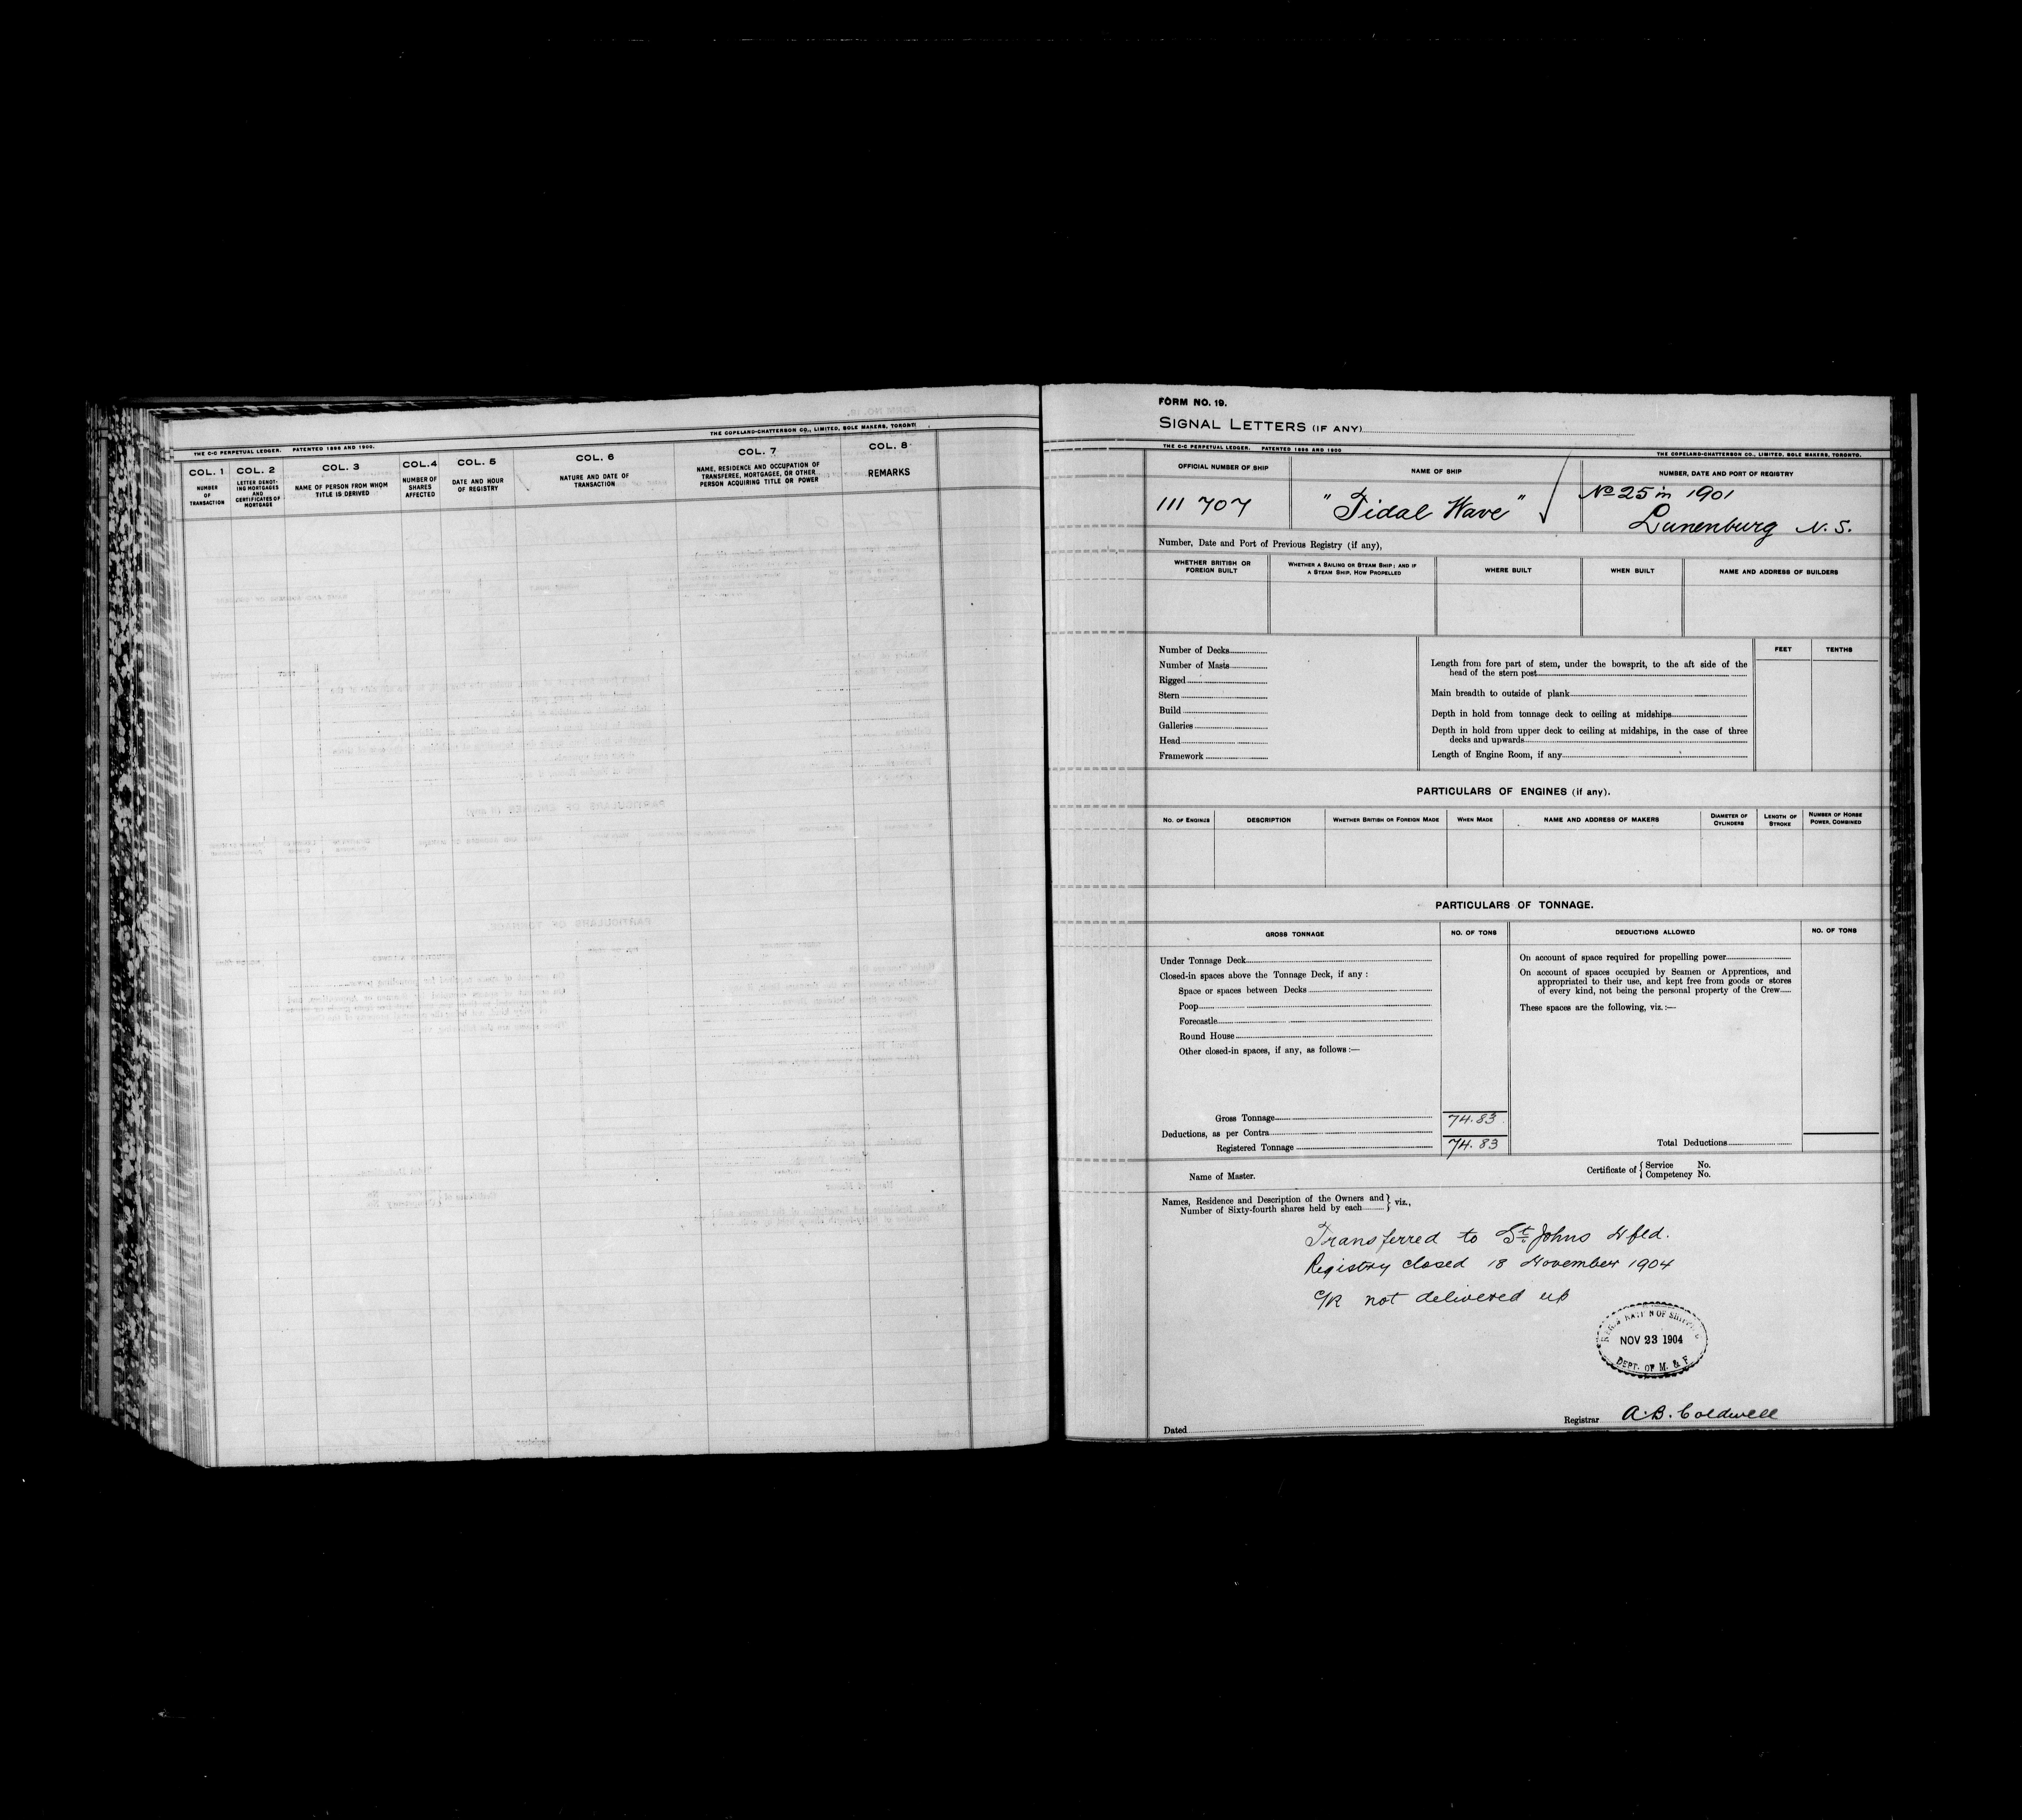 THE C-C PERPETUAL LEDGER. PATENTED 1899 AND 1900.
THE COPELAND-CHATTERSON CO., LIMITED, SOLE MAKERS, TORONTO
COL. 1
NUMBER
OF
TRANSACTION
COL. 2
LETTER DENOT-
ING MORTGAGES
AND
CERTIFICATES OF
MORTGAGE
COL. 3
NAME OF PERSON FROM WHOM
TITLE IS DERIVED
COL. 4
NUMBER OF
SHARES
AFFECTED
COL. 5
DATE AND HOUR
OF REGISTRY
COL. 6
NATURE AND DATE OF
TRANSACTION
COL. 7
NAME, RESIDENCE AND OCCUPATION OF
TRANSFEREE, MORTGAGEE, OR OTHER
PERSON ACQUIRING TITLE OR POWER
COL. 8
REMARKS
FORM NO. 19.
SIGNAL LETTERS (IF ANY)
THE C-C PERPETUAL LEDGER. PATENTED 1899 AND 1900
THE COPELAND-CHATTERSON CO., LIMITED, SOLE MAKERS, TORONTO.
OFFICIAL NUMBER OF SHIP
111 707
NAME OF SHIP
"Tidal Wave"
NUMBER, DATE AND PORT OF REGISTRY
No 25 in 1901
Lunenburg N. S.
Number, Date and Port of Previous Registry (if any),
WHETHER BRITISH OR
FOREIGN BUILT
WHETHER A SAILING OR STEAM SHIP; AND IF
A STEAM SHIP, HOW PROPELLED
WHERE BUILT
WHEN BUILT
NAME AND ADDRESS OF BUILDERS
Number of Decks
Number of Masts
Rigged
Stern
Build
Galleries
Head
Framework
FEET TENTHS
Length from fore part of stem, under the bowsprit, to the aft side of the
head of the stern post
Main breadth to outside of plank
Depth in hold from tonnage deck to ceiling at midships
Depth in hold from upper deck to ceiling at midships, in the case of three
decks and upwards
Length of Engine Room, if any
PARTICULARS OF ENGINES (if any).
NO. OF ENGINES
DESCRIPTION
WHETHER BRITISH OR FOREIGN MADE
WHEN MADE
NAME AND ADDRESS OF MAKERS
DIAMETER OF
CYLINDERS
LENGTH OF
STROKE
NUMBER OF HORSE
POWER, COMBINED
PARTICULARS OF TONNAGE.
GROSS TONNAGE
NO. OF TONS
DEDUCTIONS ALLOWED
NO. OF TONS
Under Tonnage Deck
Closed-in spaces above the Tonnage Deck, if any :
Space or spaces between Decks
Poop
Forecastle
Round House
Other closed-in spaces, if any, as follows :—
Gross Tonnage 74.83
Deductions, as per Contra
Registered Tonnage 74.83
On account of space required for propelling power
On account of spaces occupied by Seamen or Apprentices, and
appropriated to their use, and kept free from goods or stores
of every kind, not being the personal property of the Crew
These spaces are the following, viz. :—
Total Deductions
Name of Master.
Certificate of { Service No.
Competency No.
Names, Residence and Description of the Owners and
Number of Sixty-fourth shares held by each } viz.,
Transferred to St. Johns Nfld.
Registry closed 18 November 1904
C/R not delivered up
NOV 23 1904
DEPT. OF M. & F.
Dated
Registrar A. B. Coldwell